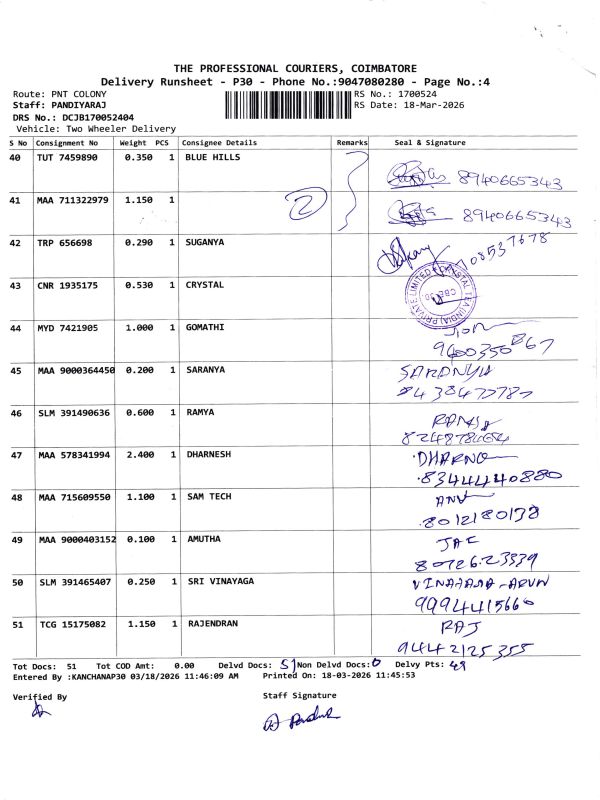 THE PROFESSIONAL COURIERS, COIMBATORE
Delivery Runsheet - P30 - Phone No.:9047080280 - Page No.:4
Route: PNT COLONY RS No.: 1700524
Staff: PANDIYARAJ RS Date: 18-Mar-2026
DRS No.: DCJB170052404
Vehicle: Two Wheeler Delivery
S No Consignment No Weight PCS Consignee Details Remarks Seal & Signature
40 TUT 7459890 0.350 1 BLUE HILLS 8940665343
41 MAA 711322979 1.150 1 2 8940665343
42 TRP 656698 0.290 1 SUGANYA
43 CNR 1935175 0.530 1 CRYSTAL
44 MYD 7421905 1.000 1 GOMATHI
45 MAA 9000364450 0.200 1 SARANYA SARANYA
46 SLM 391490636 0.600 1 RAMYA
47 MAA 578341994 2.400 1 DHARNESH 8344440880
48 MAA 715609550 1.100 1 SAM TECH 8012180138
49 MAA 9000403152 0.100 1 AMUTHA
50 SLM 391465407 0.250 1 SRI VINAYAGA 9994415660
51 TCG 15175082 1.150 1 RAJENDRAN RAJ 9442125355
Tot Docs: 51 Tot COD Amt: 0.00 Delvd Docs: 51 Non Delvd Docs: 0 Delvy Pts: 49
Entered By :KANCHANAP30 03/18/2026 11:46:09 AM Printed On: 18-03-2026 11:45:53
Verified By Staff Signature